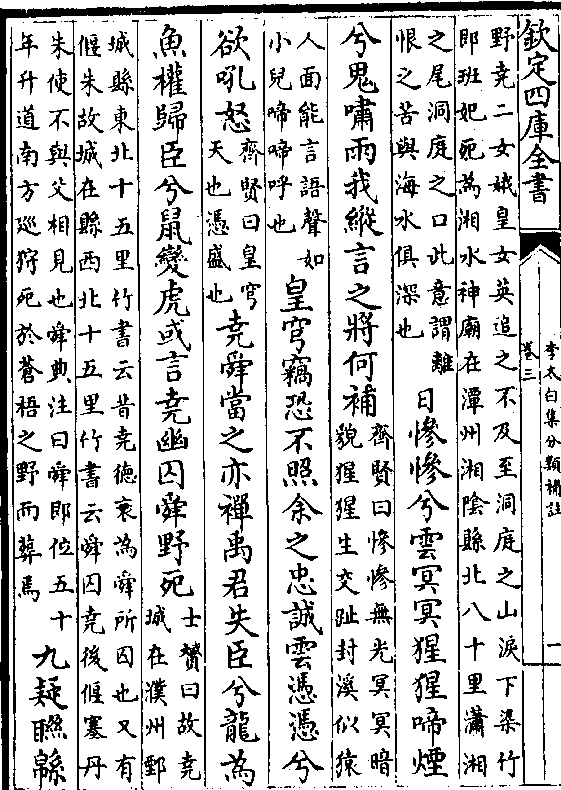 欽定四庫全書
李太白集分類補註
卷三
一
野堯二女娥皇女英追之不及至洞庭之山淚下染竹
即班妃死為湘水神廟在潭州湘陰縣北八十里瀟湘
之尾洞庭之口此意謂離
恨之苦與海水俱深也
日慘慘兮雲冥冥猩猩啼煙
兮鬼嘯雨我縱言之將何補
齊賢曰慘慘無光冥冥暗
貌猩猩生交趾封溪似猿
人面能言語聲如
小兒啼啼呼也
皇穹竊恐不照余之忠誠雲憑憑兮
欲吼怒
齊賢曰皇穹
天也憑盛也
堯舜當之亦禪禹君失臣兮龍為
魚權歸臣兮鼠變虎或言堯幽囚舜野死
士贇曰故堯
城在濮州鄄
城縣東北十五里竹書云昔堯德衰為舜所囚也又有
偃朱故城在縣西北十五里竹書云舜囚堯後偃塞丹
朱使不與父相見也舜典注曰舜即位五十
年升道南方廵狩死於蒼梧之野而葬焉
九疑聯綿